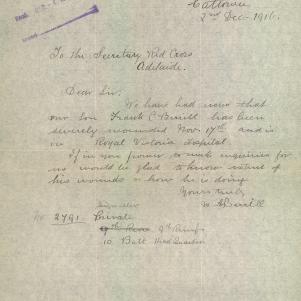 Cattown.
2nd Dec. 1916.
To the Secretary Red Cross
Adelaide.
Dear Sir:
We have had news that
our Son Frank C Burrill has been
severely wounded Nov 17th and is
in Royal Victoria Hospital.
If in your power to make enquiries for
us would be glad to know nature of
his wounds & how he is doing
Yours truly
Signaller
No 2791 Private
9th Reinfs
10 Batt Head Quarters